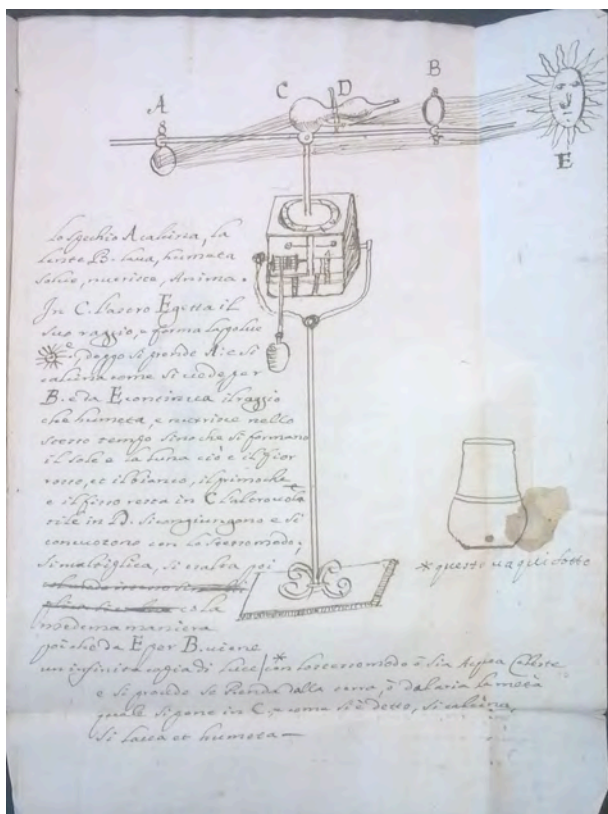 A
C
D
B
E
lo spechio A calcina, la
lente B. laua, humeta
solue, nutrisce, Anima.
In C. l'astro E getta il
suo raggio, e forma la polue
e, doppo si prende A: e si
calcina come si uede per
B. e da E continua il raggio
che humeta, e nutrisce nello
stesso tempo sino che si formano
il sole e la luna ciò è il fior
rosso, et il bianco, il primo che
e il fisso resta in C l'altro uola
tile in D. si congiungono e si
con lo stesso modo;
si moltiplica, si exalta poi
e o la
medema maniera
poiche da E per B. uiene
un infinita copia di luce / * con lo stesso modo ò sia Acqua Celeste
e si prende se Pienda dalla terra, ò dal aria la metà
quale si pone in C, e come si è detto, si calcina,
si laua et humeta
* questo ua qui sotto